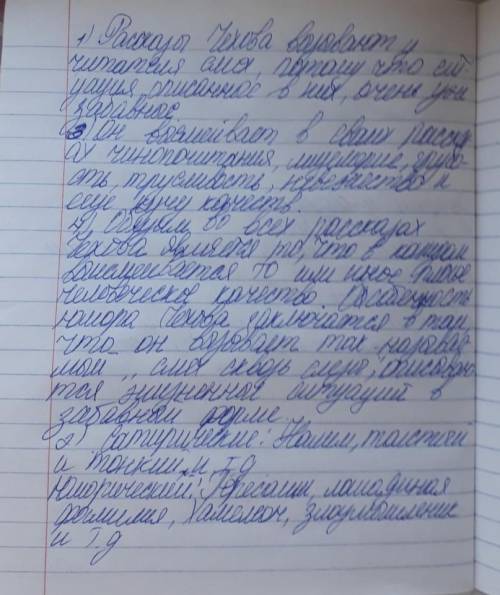 1) Рассказы Чехова вызывают у
читателя смех, потому что сит-
уация, описанное в них, очень уж
забавное.
3 Он высмеивает в своих расска-
ах чинопочитания, лицемерие, грубо-
сть, трусливость, невежество и
еще кучу качеств.
4) Общим во всех рассказах
Чехова является то, что в каждом
высмеивается то или иное плохое
человеческое качество. Особенность
юмора Чехова заключатся в том,
что он вызовает так называе-
мый ,, смех сквозь слезы", описовае-
тся жизненная ситуаций в
забавной форме.
2) Сатирические: Налим, толстый
и тонкий и т.д
Юморический: Пересолил, лошадиная
фамилия, Хамелеон, злоумышленник
и т.д